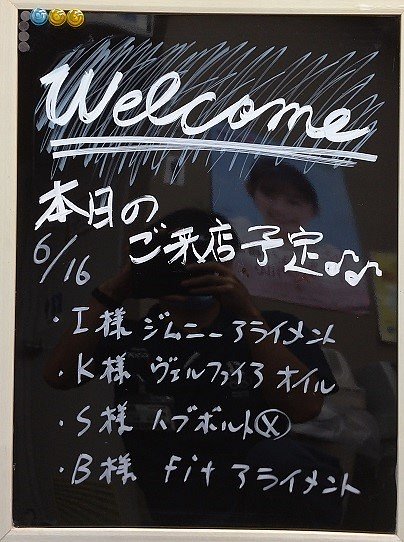 Welcome
本日の
6/16 ご来店予定♪♫
・I様 ジムニー アライメント
・K様 ヴェルファイア オイル
・S様 ハブボルト Ⓧ
・B様 Fit アライメント